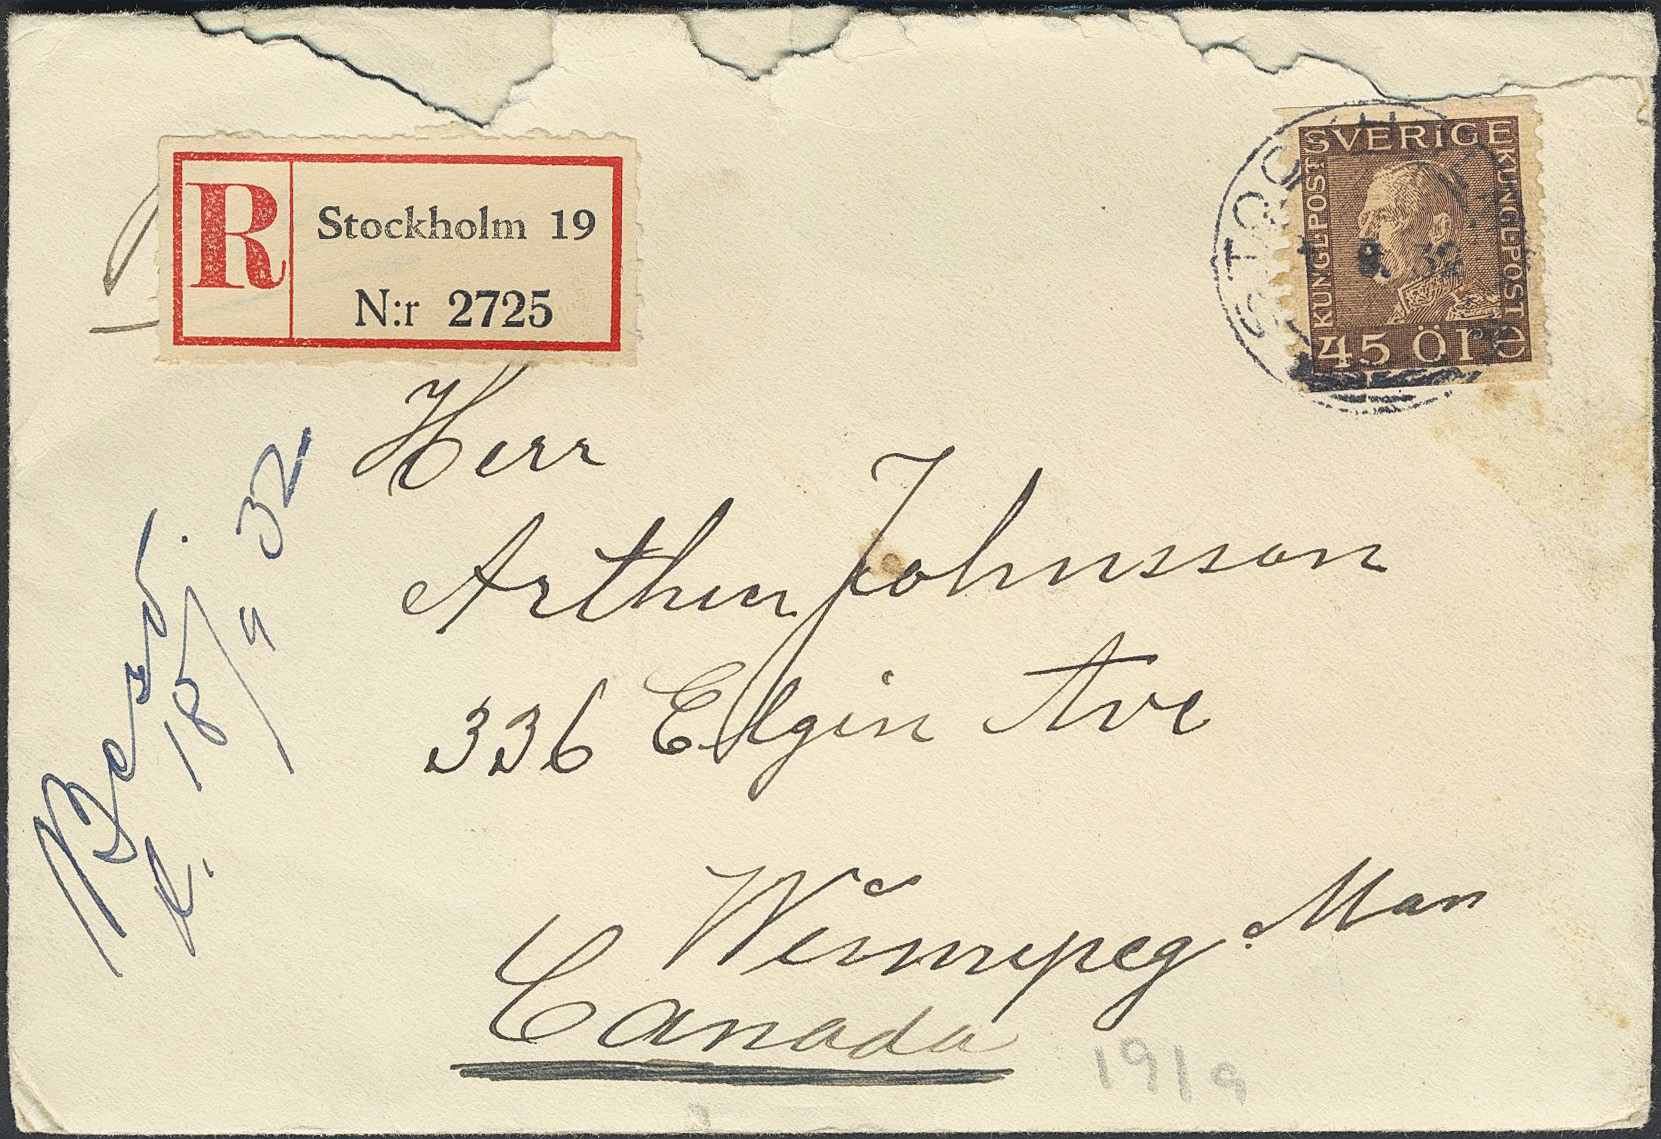 R
Stockholm 19
N:r 2725
SVERIGE
KUNGL POST
KUNGL POST
45 öre
STOCKH
9. 32
Herr
Arthur Johnsson
336 Elgin Ave
Winnipeg. Man
Canada
Besv.
18/9 32
19/9